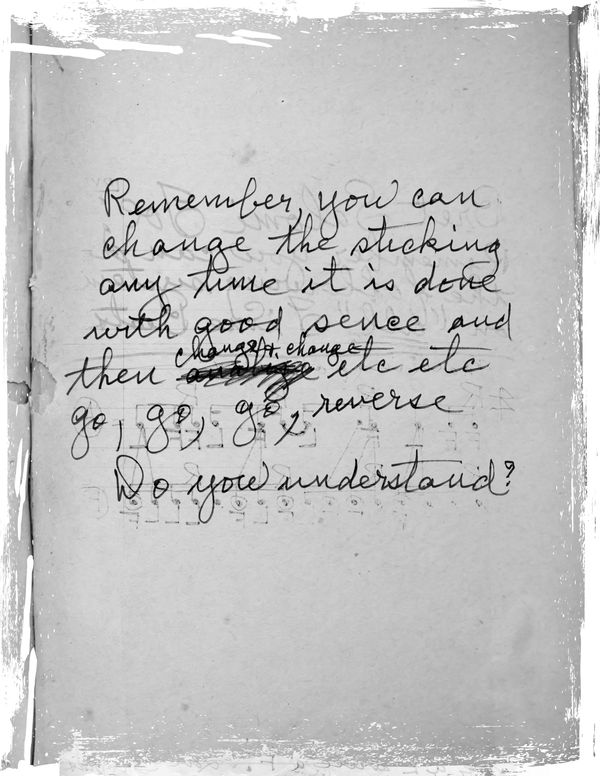 Remember, you can
change the sticking
any time it is done
with good sence and
then change + change etc etc
go, go, go, reverse
Do you understand?